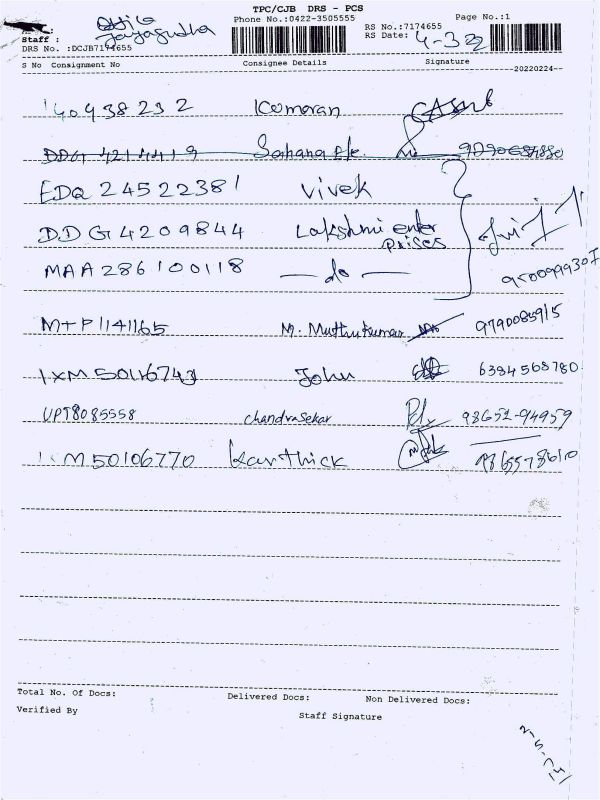 TPC/CJB DRS - PCS
Phone No.:0422-3505555 Page No.:1
Staff : RS No.:7174655
DRS No. :DCJB7174655 RS Date: 4-3-22
S No Consignment No Consignee Details Signature
20220224
140438232 Kumaran
DDG 4214419 Sahana Ele.
EDQ 24522381 Vivek
DDG4209844 Lakshmi enter
prises
MAA286100118 — do — 9500999307
MTP1141165 M. Muthukumar 9790085915
1XM 50116743 John 6384568780
UPT8085558 chandrasekar 98652-94959
M50106770 Karthick 9865578610
Total No. Of Docs: Delivered Docs: Non Delivered Docs:
Verified By Staff Signature